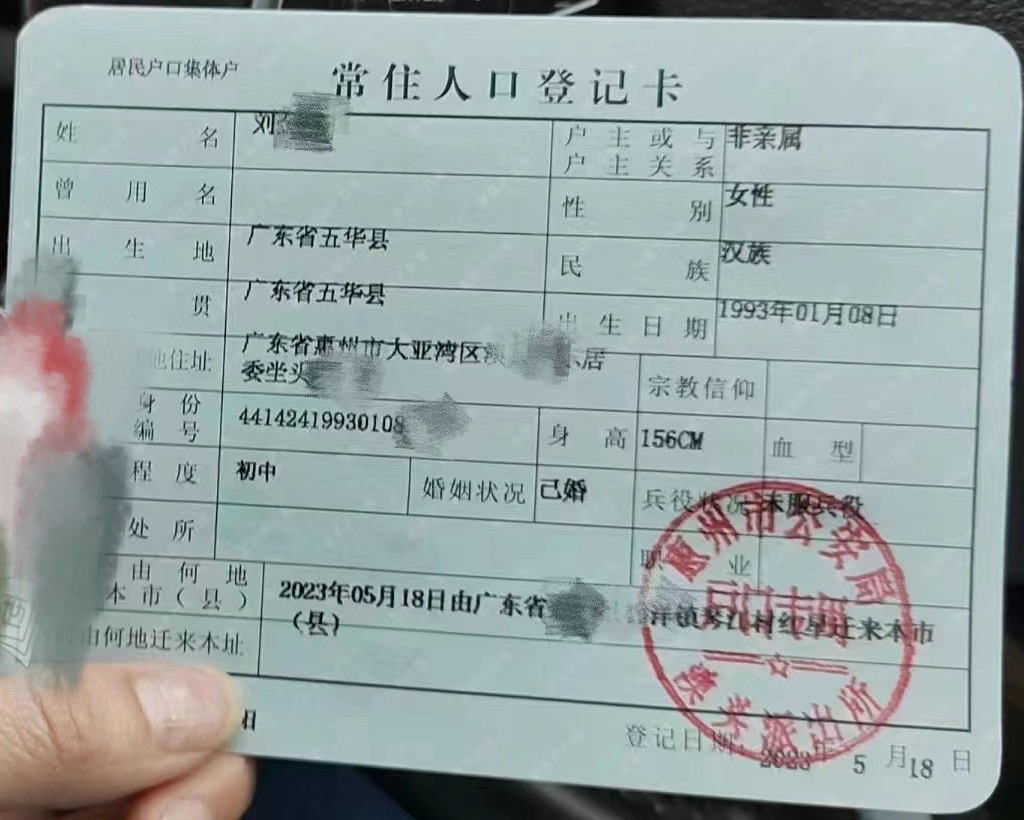 居民户口集体户
常住人口登记卡
姓名 刘
户主或与
户主关系 非亲属
曾用名
性别 女性
出生地 广东省五华县
民族 汉族
贯 广东省五华县
出生日期 1993年01月08日
他住址 广东省惠州市大亚湾区 居
委坐头
宗教信仰
身份
编号 44142419930108
身高 156CM
血型
程度 初中
婚姻状况 已婚
兵役状况 未服兵役
处所
职业
由何地
本市(县) 2023年05月18日由广东省 镇琴江村红星迁来本市
(县)
由何地迁来本址
惠州市公安局
户口专用
派出所
登记日期: 2023年5月18日